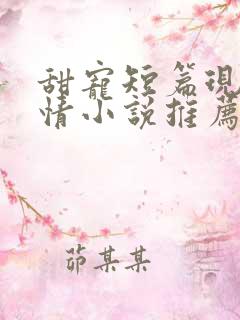 甜寵短篇現
情小說推薦
茆某某